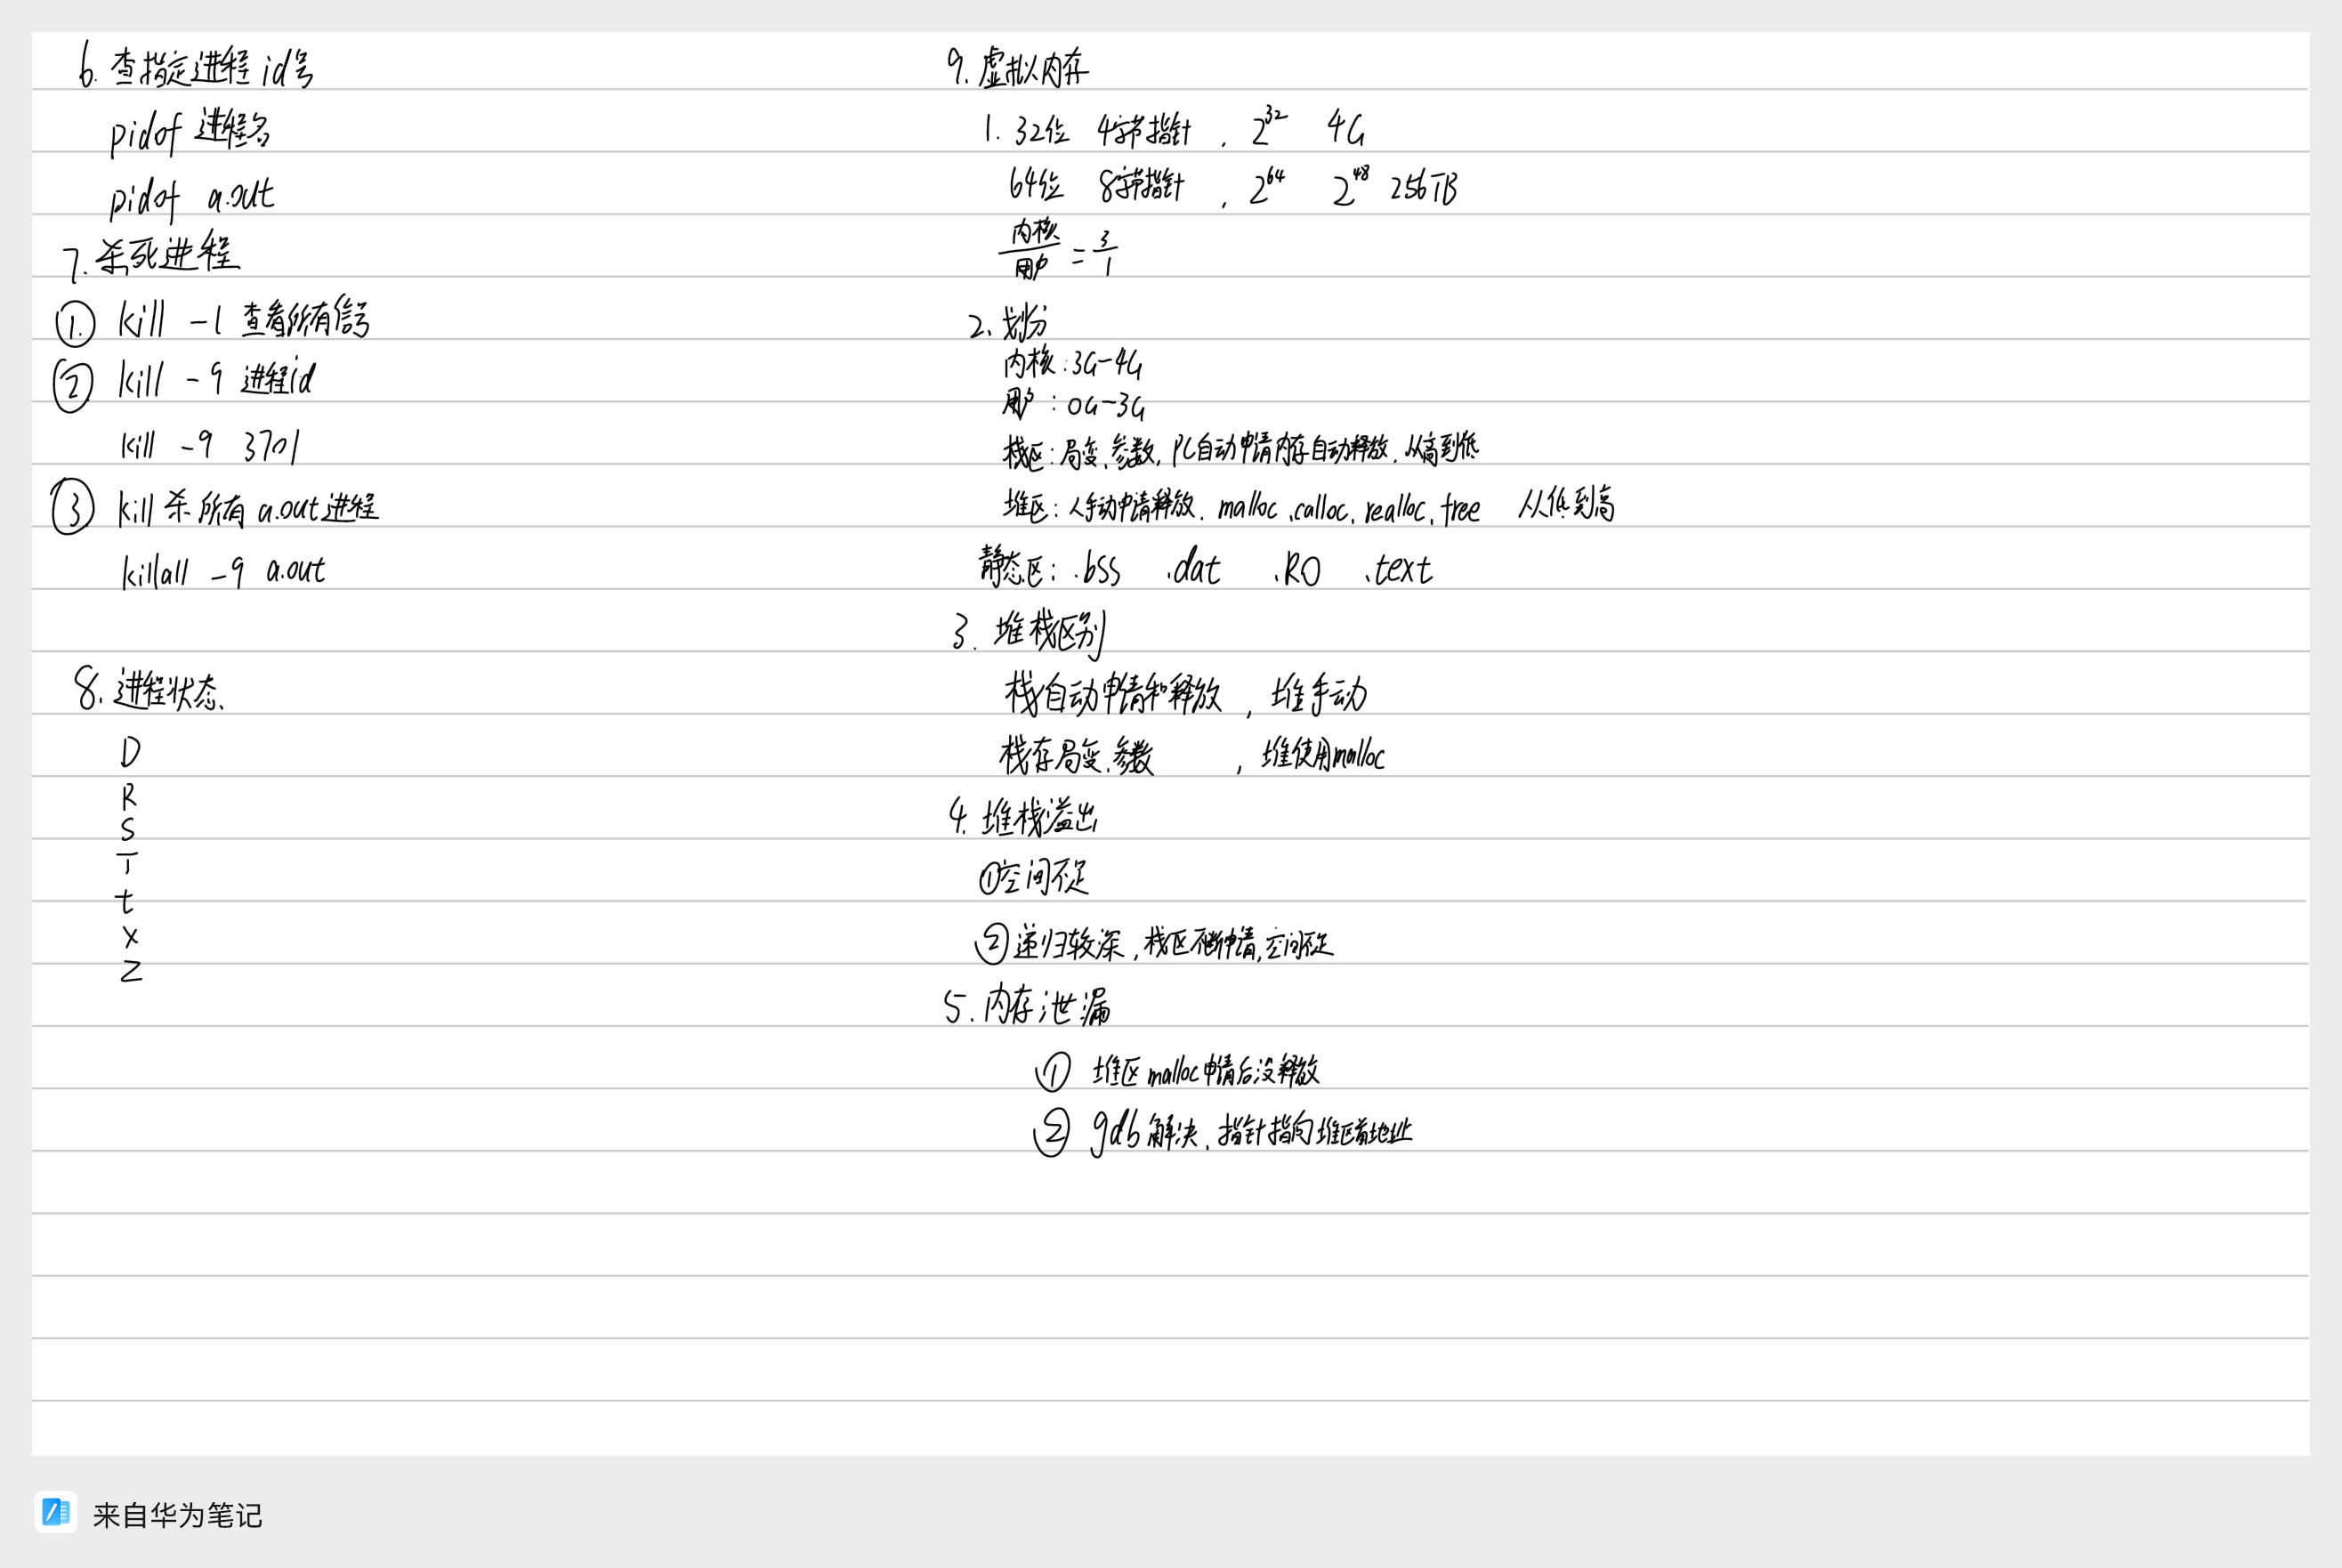 6. 查指定进程id号
pidof 进程名
pidof a.out
7. 杀死进程
① kill -l 查看所有信号
② kill -9 进程id
kill -9 3701
③ kill 杀所有 a.out进程
killall -9 a.out
8. 进程状态、
D
R
S
T
t
X
Z
9. 虚拟内存
1. 32位 4字节指针, 2^32 4G
64位 8字节指针, 2^64 2^48 256TB
内核/用户 = 3/1
2、划分
内核:3G-4G
用户:0G-3G
栈区:局变、参数, PC自动申请内存自动释放、从高到低
堆区:人手动申请释放、malloc、calloc、realloc、free 从低到高
静态区:.bss .dat .RO .text
3. 堆栈区别
栈自动申请和释放, 堆手动
栈存局变、参数 , 堆使用malloc
4. 堆栈溢出
①空间不足
②递归较深,栈区不断申请,空间不足
5. 内存泄漏
① 堆区malloc申请后没释放
② gdb解决、指针指向堆区首地址
来自华为笔记